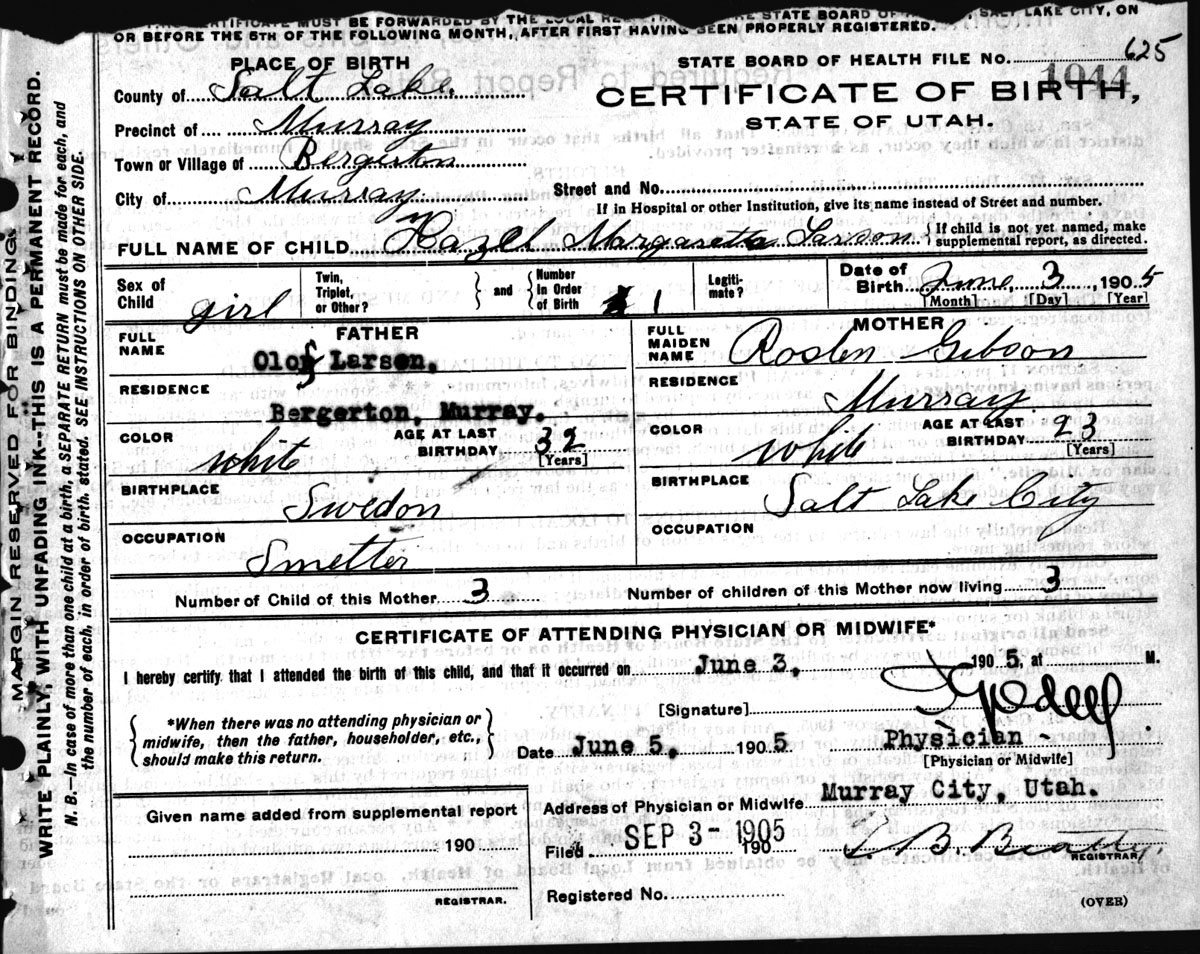 THIS CERTIFICATE MUST BE FORWARDED BY THE LOCAL THE STATE BOARD OF SALT LAKE CITY, ON
OR BEFORE THE 5TH OF THE FOLLOWING MONTH, AFTER FIRST HAVING BEEN PROPERLY REGISTERED.
PLACE OF BIRTH
County of Salt Lake.
Precinct of Murray
Town or Village of Bergerton
City of Murray
STATE BOARD OF HEALTH FILE NO. 1044 625
CERTIFICATE OF BIRTH,
STATE OF UTAH.
Street and No.
If in Hospital or other Institution, give its name instead of Street and number.
FULL NAME OF CHILD Hazel Margaretta Larson { If child is not yet named, make supplemental report, as directed.
Sex of Child girl
Twin, Triplet, or Other? } and { Number in Order of Birth 1
Legitimate?
Date of Birth June, 3, 1905
[Month] [Day] [Year]
FATHER
FULL NAME
Olof Larsen.
RESIDENCE
Bergerton, Murray.
COLOR white AGE AT LAST BIRTHDAY 32
[Years]
BIRTHPLACE
Swedon
OCCUPATION
Smelter
MOTHER
FULL MAIDEN NAME Roslen Gibson
RESIDENCE
Murray
COLOR White AGE AT LAST BIRTHDAY 23
[Years]
BIRTHPLACE
Salt Lake City
OCCUPATION
Number of Child of this Mother 3 Number of children of this Mother now living 3
CERTIFICATE OF ATTENDING PHYSICIAN OR MIDWIFE*
I hereby certify that I attended the birth of this child, and that it occurred on June 3, 1905, at M.
{ *When there was no attending physician or
midwife, then the father, householder, etc.,
should make this return. }
[Signature]
Date June 5, 1905 Physician -
[Physician or Midwife]
Given name added from supplemental report
190
REGISTRAR.
Address of Physician or Midwife Murray City, Utah.
Filed SEP 3 - 1905 190 B. Beatty.
REGISTRAR
Registered No.
(OVER)
MARGIN RESERVED FOR BINDING
WRITE PLAINLY, WITH UNFADING INK--THIS IS A PERMANENT RECORD.
N. B.--In case of more than one child at a birth, a SEPARATE RETURN must be made for each, and
the number of each, in order of birth, stated. SEE INSTRUCTIONS ON OTHER SIDE.